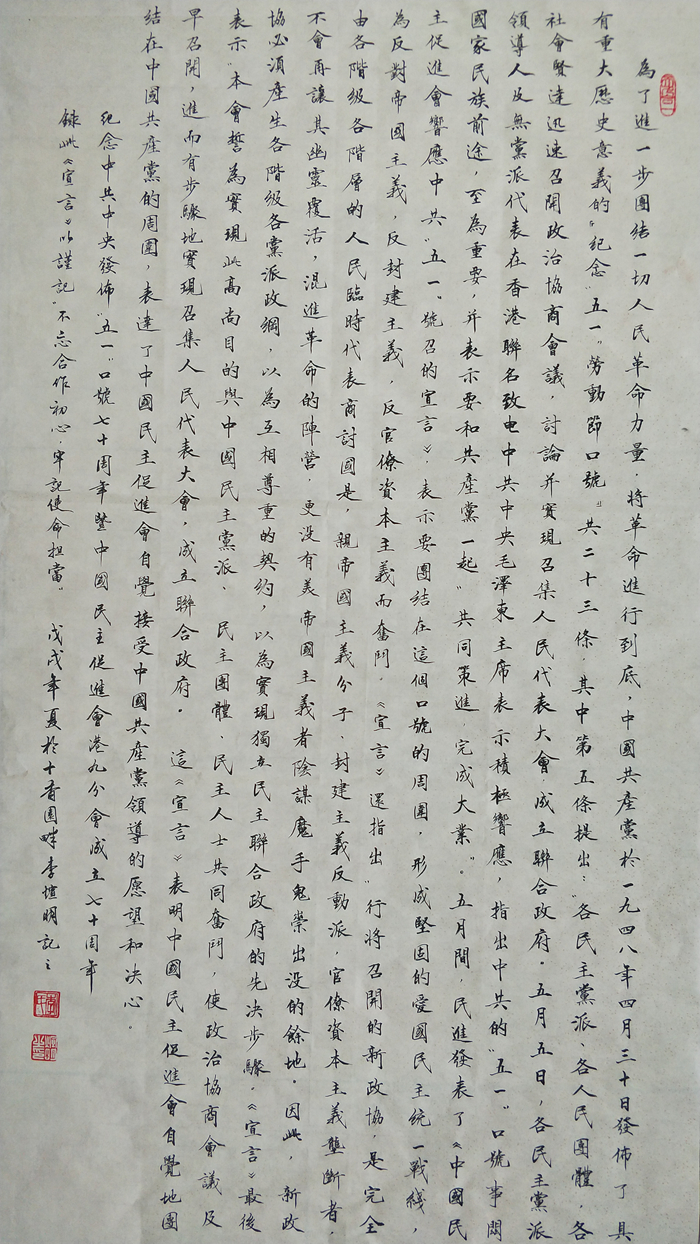 為了進一步團結一切人民革命力量，將革命進行到底，中國共產黨於一九四八年四月三十日發佈了具
有重大歷史意義的“紀念“五一”勞動節口號”共二十三條，其中第五條提出：“各民主黨派、各人民團體，各
社會賢達迅速召開政治協商會議，討論并實現召集人民代表大會成立聯合政府。五月五日，各民主黨派
領導人及無黨派代表在香港聯名致电中共中央毛澤東主席表示積極響應，指出中共的“五一”口號事関
國家民族前途，至為重要，并表示要和共產黨一起“共同策進，完成大業”。五月間，民進發表了《中國民
主促進會響應中共“五一”號召的宣言》，表示要團結在這個口號的周圍，形成堅固的愛國民主統一戰綫，
為反對帝國主義，反封建主義，反官僚資本主義而奮鬥。《宣言》還指出“行將召開的新政協，是完全
由各階級各階層的人民臨時代表商討國是，親帝國主義分子，封建主義反動派，官僚資本主義壟斷者，
不會再讓其幽靈覆活，混進革命的陣營，更没有美帝國主義者陰謀魔手鬼祟出没的餘地。因此，新政
協必須產生各階級各黨派政綱，以為互相尊重的契約，以為實現獨立民主聯合政府的先决步驟。《宣言》最後
表示“本會誓為實現此高尚目的與中國民主黨派、民主團體、民主人士共同奮鬥，使政治協商會議及
早召開，進而有步驟地實現召集人民代表大會，成立聯合政府。 這《宣言》表明中國民主促進會自覺地團
結在中國共產黨的周圍，表達了中國民主促進會自覺接受中國共產黨領導的愿望和决心。
紀念中共中央發佈“五一”口號七十周年暨中國民主促進會港九分會成立七十周年
錄此《宣言》以謹記“不忘合作初心，牢記使命担當”。 戊戌年夏於十香園畔李愃明記之